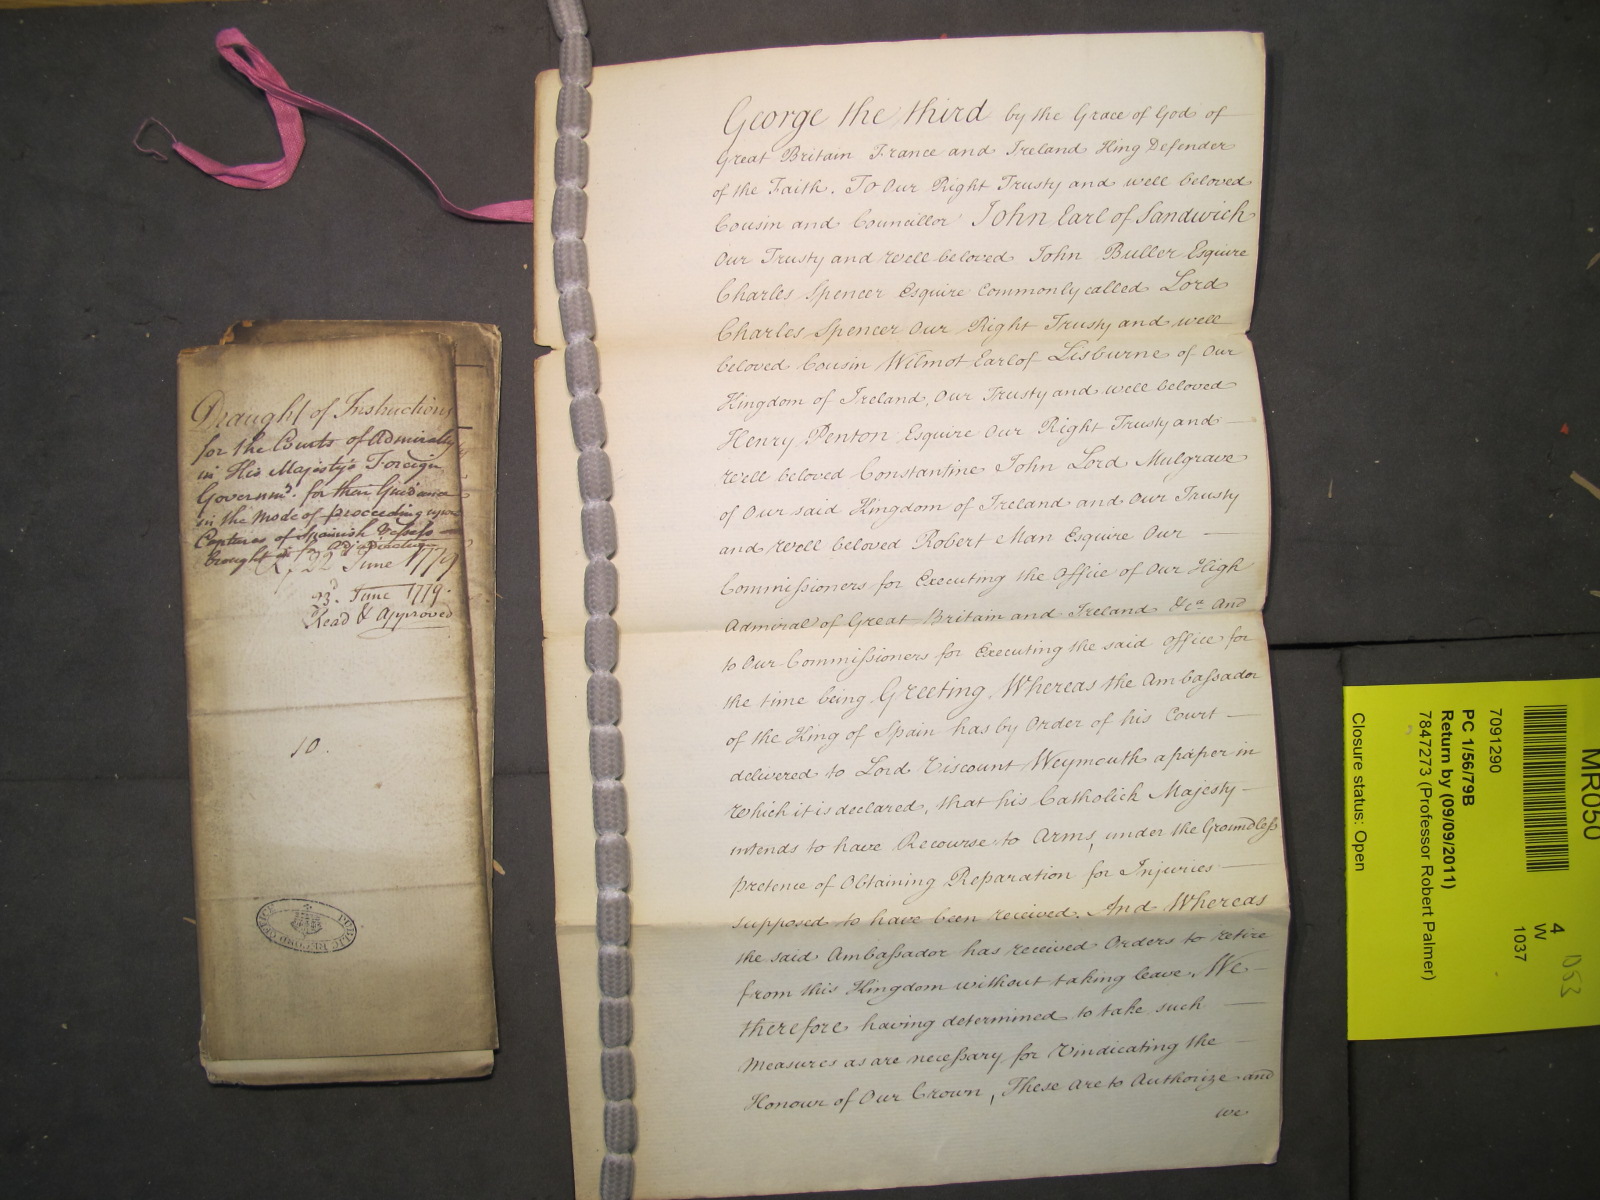 Draught of Instructions
for the Courts of Admiralty
in His Majesty's Foreign
Governmts. for their Guidance
in the Mode of proceeding upon
Captures of Spanish Vessels
brought in for Adjudication
R. 22d June 1779
23d. June 1779.
Read & Approved
10.
PUBLIC RECORD OFFICE
George the third by the Grace of God of
Great Britain France and Ireland King Defender
of the Faith. To Our Right Trusty and well beloved
Cousin and Councillor John Earl of Sandwich
Our Trusty and Well beloved John Buller Esquire
Charles Spencer Esquire Commonly called Lord
Charles Spencer Our Right Trusty and well
beloved Cousin Wilmot Earl of Lisburne of Our
Kingdom of Ireland, Our Trusty and well beloved
Henry Penton Esquire Our Right Trusty and —
Well beloved Constantine John Lord Mulgrave
of Our said Kingdom of Ireland and Our Trusty
and Well beloved Robert Man Esquire Our —
Commissioners for Executing the Office of Our High
Admiral of Great Britain and Ireland &ca. And
to Our Commissioners for Executing the said Office for
the time being Greeting. Whereas the Ambassador
of the King of Spain has by Order of his Court —
delivered to Lord Viscount Weymouth a paper in
Which it is declared, that his Catholick Majesty —
intends to have Recourse to Arms, under the Groundless
pretence of Obtaining Reparation for Injuries —
supposed to have been received. And Whereas
the said Ambassador has received Orders to retire
from this Kingdom without taking leave. We —
therefore having determined to take such —
Measures as are necessary for Vindicating the —
Honour of Our Crown, These are to Authorize and
we
MR050
4
W
1037
053
7091290
PC 1/56/79B
Return by (09/09/2011)
7847273 (Professor Robert Palmer)
Closure status: Open